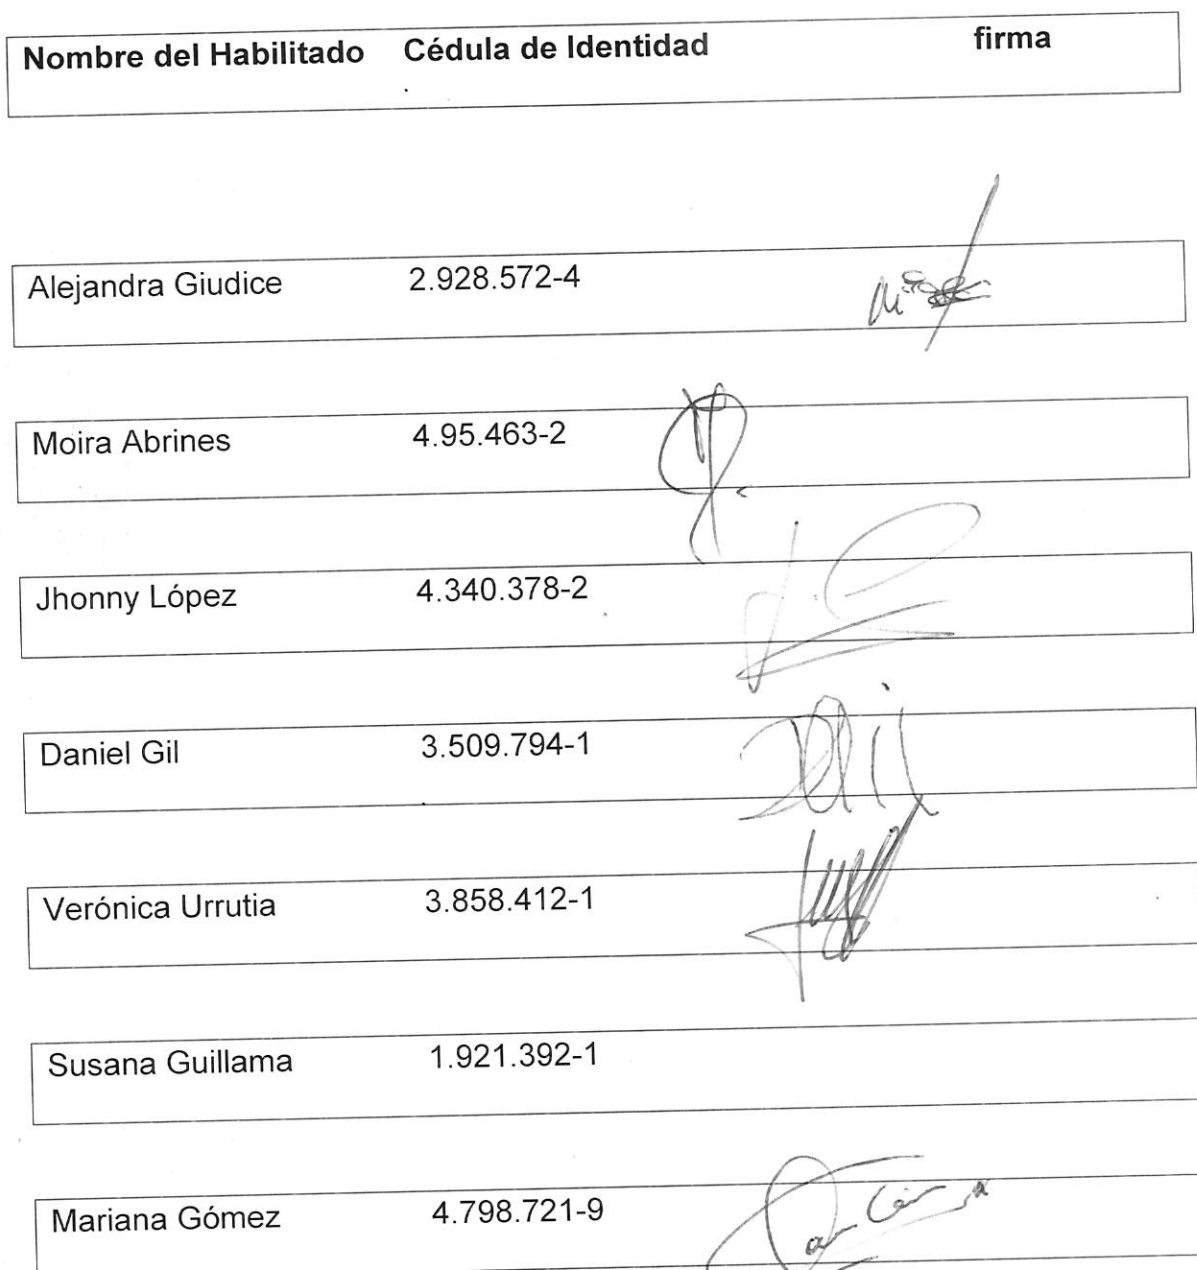 Nombre del Habilitado Cédula de Identidad firma
Alejandra Giudice 2.928.572-4
Moira Abrines 4.95.463-2
Jhonny López 4.340.378-2
Daniel Gil 3.509.794-1
Verónica Urrutia 3.858.412-1
Susana Guillama 1.921.392-1
Mariana Gómez 4.798.721-9